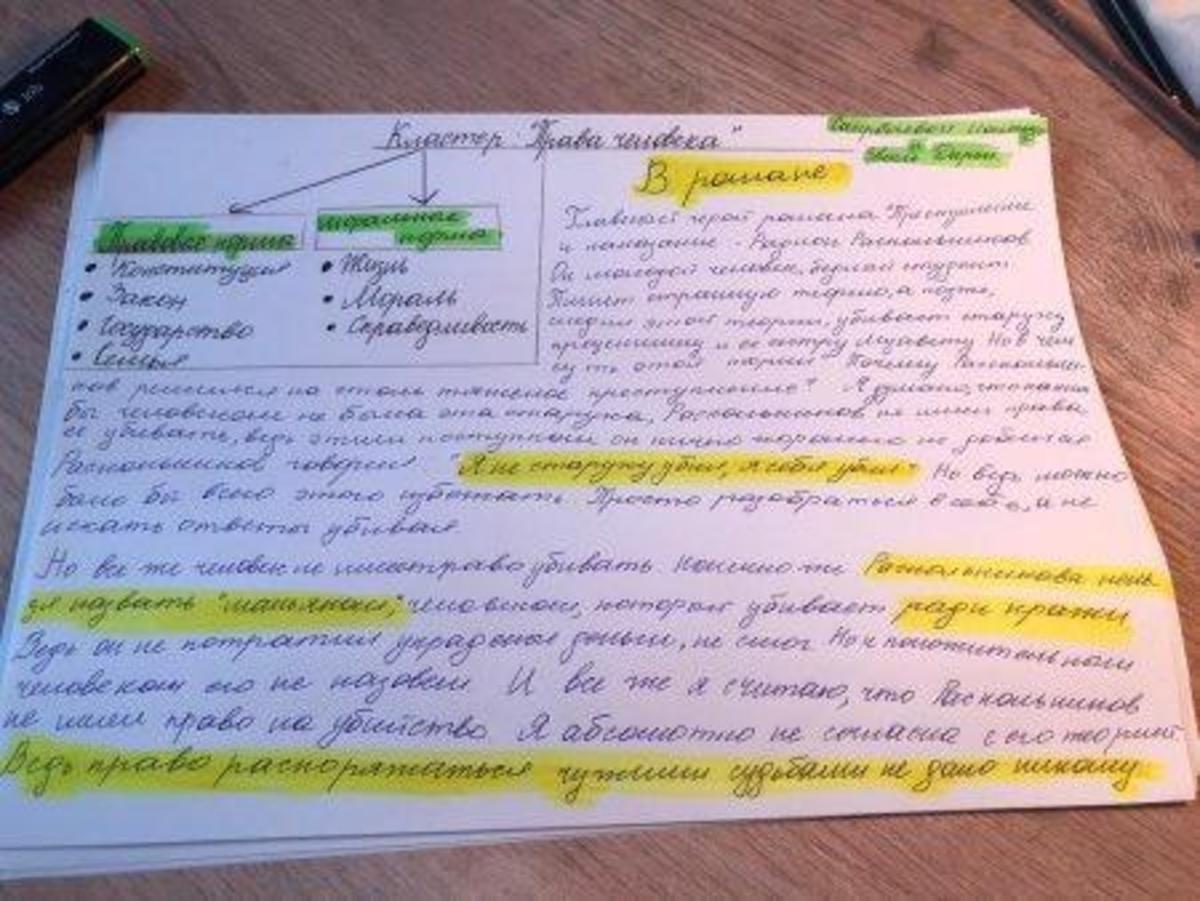 Кластер "Права человека"
Правовые нормы
• Конституция
• Закон
• Государство
• Семья
моральные
нормы
• Жизнь
• Мораль
• Справедливость
Дарьи
В романе
Главный герой романа "Преступление
и наказание - Родион Раскольников
Он молодой человек, бедный студент
Пишет страшную теорию, а позже,
следуя этой теории, убивает старуху
процентщицу и её сестру Лизавету Но в чем
суть этой теории Почему Раскольни
ков решился на столь тяжелое преступление? Я думаю, что каким
бы человеком не была эта старуха, Раскольников не имел права
её убивать, ведь этим поступком он ничего морально не добился
Раскольников говорил "Я не старуху убил, я себя убил" Но ведь можно
было бы всего этого избежать. Просто разобраться в себе, а не
искать ответы убивая
Но все же человек не имеет право убивать. Конечно же Раскольникова нель
зя назвать "маньяком", человеком, который убивает ради кражи
Ведь он не потратил украденые деньги, не смог Но и положительным
человеком его не назовем И все же я считаю, что Раскольников
не имел право на убийство. Я абсолютно не согласна с его теорией
Ведь право распоряжаться чужими судьбами не дано никому